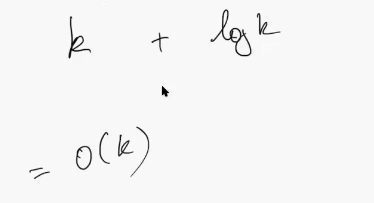 k + log k
= O(k)